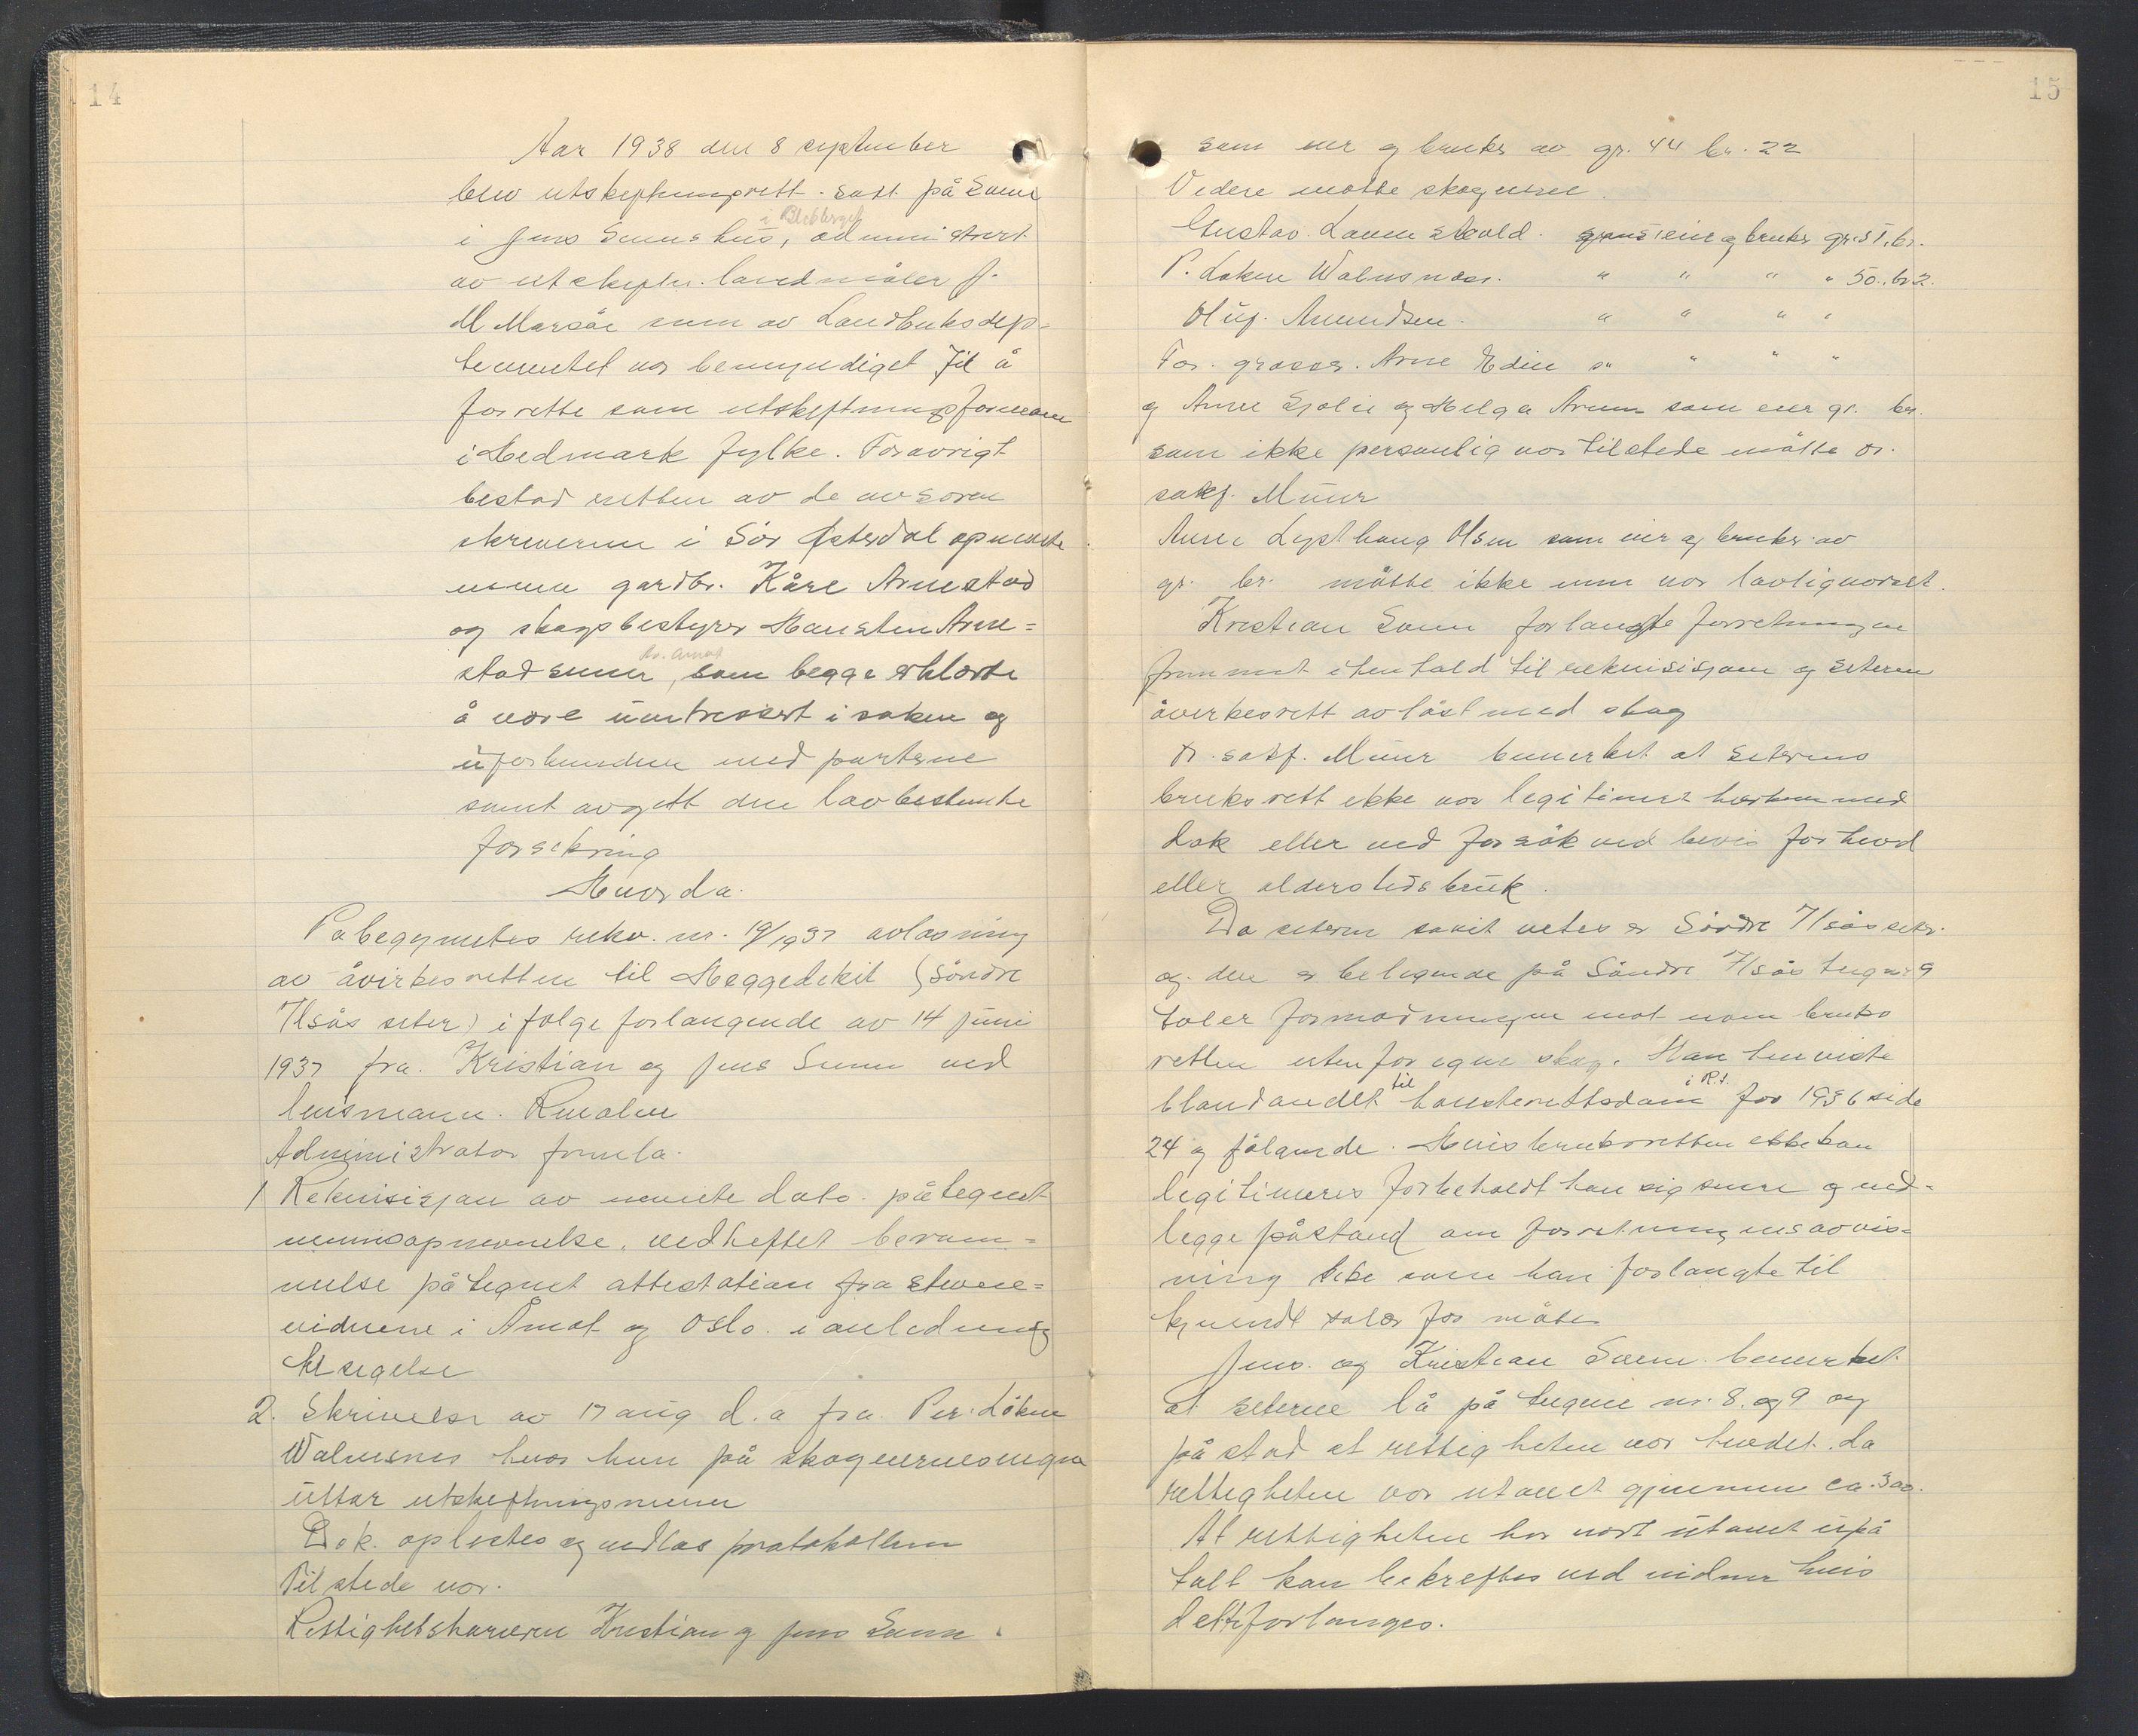 14
Aar 1938 den 8 september
blev utskiftningsrett satt på Sunn
i Blikberget
i Jens Sunns hus, administrert
av utskiftn. landmåler J.
M Marsåe som av Landbruksdep-
tementet var bemyndiget til å
forrette som utskiftningsformann
i Hedmark fylke. Foravrigt
bestod retten av de av soren
skriveren i Sör Østerdal opnevnte
menn gardbr. Kåre Arnestad
og skogsbestyrer Hansten Arne=
stadsunn, som begge erklærte
å være uintressert i saken og
uforbundne med parterne
samt avgitt den lovbestemte
forsikring
Hvorda
Påbegyntes rekv. nr. 19/1937 avløsning
av åvirkesretten til Heggedekit (Söndre
Ilsås seter) i følge forlangende av 14 juni
1937 fra Kristian og Jens Sunn ved
lensmann
Administrator fremla
1 Rekvisisjon av nevnte dato påtegnet
mennsopnevnelse, vedheftet beram=
melse påtegnet attestation fra stevne=
vidnene i Åmot og Oslo i anledning
2. Skrivelse av 17 aug d. a fra Per Löken
Walmsnes hvor han på skogeiernes vegne
uttar utskiftningsmenn
Dok. oplestes og vedlas protokollen
Tilstede var.
Rettighetshaverne Kristian og Jens Sunn
15
som eier og bruker av gr. 44 br. 22
Videre møtte skogeierne
Gustav Lauen Skuld eier og bruker gr. 51. br.
P. Løken Walmsnæs. " " " " 50. br 2.
Oluf Amundsen " " " "
For grosser. Arne Edin " " " "
og Anne Sjølie og Helga Arnem som eier gr. br.
som ikke personlig var tilstede møtte or.
sakf. Muur
Anne Lysthaug Olsen som eier og bruker av
gr. br. møtte ikke men var lovlig varslet.
Kristian Sunn forlangte forretningen
fremmet i henhold til rekvisisjon og seteren
åverkesrett avløst med skog
Or. sakf. Muur bemerket at seterens
bruksrett ikke var legitimert hverken med
dok eller ved forsök ved bevis for hevd
eller alderstids bruk.
Da seteren savit vetes er Söndre Ilsås seter
og den er beliggende på Söndre Ilsås teig nr 9
taler formodningen mot noen bruks
retten utenfor egne skog. Han henviste
til i R.t.
blandandet höiesterettsdom for 1936 side
24 og følgende. Hvis bruksretten ikke kan
legitimeres forbeholdt han sig senere og ned=
legge påstand om forretningens avvis=
ning like som han forlangte til
kjendt salær for møte
Jens og Kristian Sunn bemerket
at seterne lå på teigene nr. 8. og 9 og
påstod at rettigheten var hevdet da
rettigheten var utövet gjennem ca. 300.
At rettigheten har vært utövet upå
talt kan bekreftes ved vidner hvis
dette forlanges.